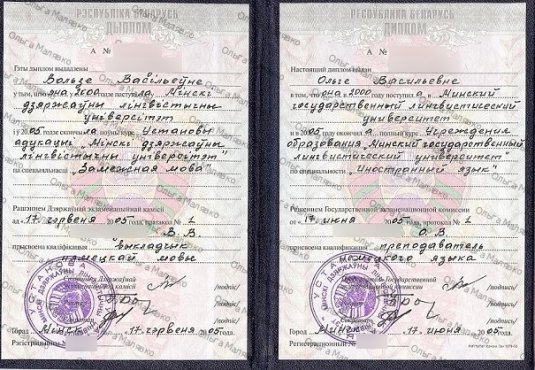 РЭСПУБЛІКА БЕЛАРУСЬ
ДЫПЛОМ
А №
Гэты дыплом выдадзены
Вользе Васільеўне
у тым, што яна 2000 годзе паступіла Мінскі
дзяржаўны лінгвістычны
універсітэт
і ў 2005 годзе скончыла поўны курс Установы
адукацыі „Мінскі дзяржаўны
лінгвістычны універсітэт"
па спецыяльнасці „Замежная мова"
Рашэннем Дзяржаўнай экзаменацыйнай камісіі
ад „17 чэрвеня 2005 года, пратакол № 1
В.В.
прысвоена кваліфікацыя „выкладчык
нямецкай мовы
Старшыня Дзяржаўнай
/подпіс/
/подпіс/
/подпіс/
Горад Мінск „17 чэрвеня 2005 года
Рэгістрацыйны №
РЕСПУБЛИКА БЕЛАРУСЬ
ДИПЛОМ
А №
Настоящий диплом выдан
Ольге Васильевне
в том, что она 2000 году поступила в Минский
государственный лингвистический
университет
и в 2005 году окончила полный курс Учреждения
образования „Минский государственный
лингвистический университет"
по специальности „Иностранный язык"
Решением Государственной экзаменационной комиссии
от „17 июня 2005 года протокол № 1
О.В.
присвоена квалификация преподаватель
немецкого языка
Председатель Государственной
экзаменационной комиссии
/подпись/
/подпись/
Секретарь
/подпись/
Город Минск „17 июня 2005 года
Регистрационный №
Ольга Малявко